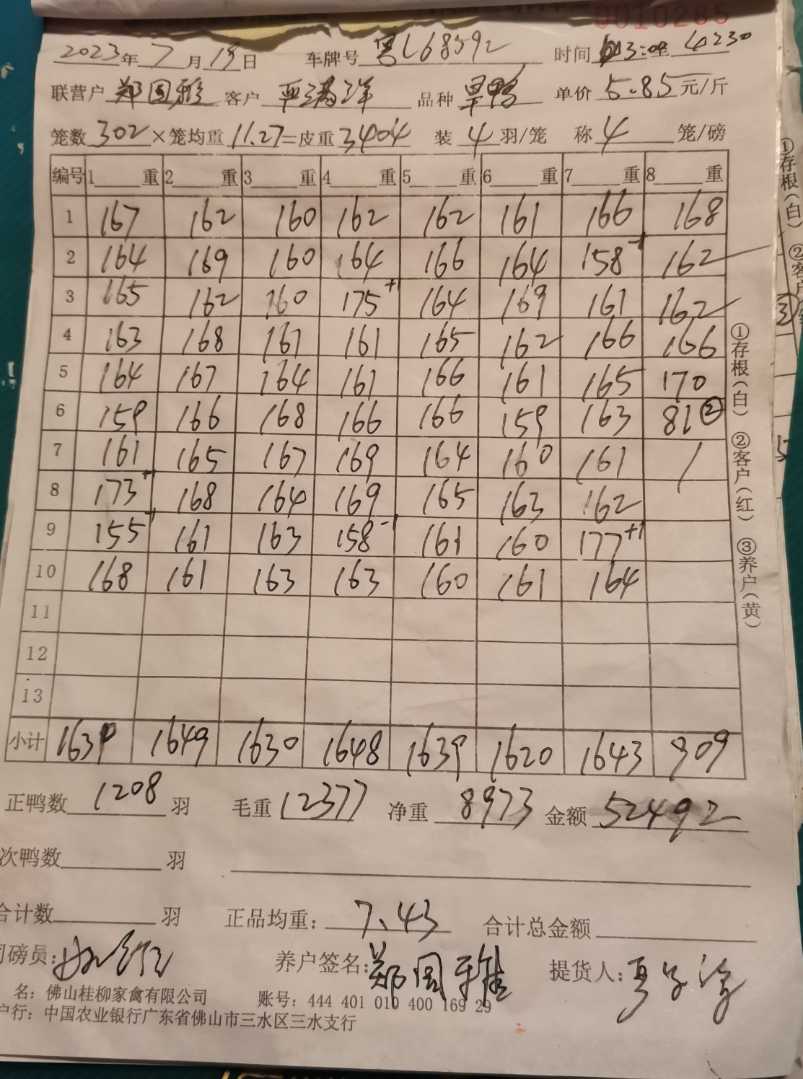 0010285
2023年7月19日 车牌号 粤L68592 时间 4230
联营户 郑国雅 客户 品种 旱鸭 单价 5.85元/斤
笼数302×笼均重11.27=皮重3404 装4羽/笼 称4笼/磅
编号 1重 2重 3重 4重 5重 6重 7重 8重
1 167 162 160 162 162 161 166 168
2 164 169 160 164 166 164 158 162
3 165 162 160 175 164 169 161 162
4 163 168 161 161 165 162 166 166
5 164 167 164 161 166 161 165 170
6 159 166 168 166 166 159 163 81②
7 161 165 167 169 164 160 161
8 173 168 164 169 165 163 162
9 155 161 163 158 161 160 177
10 168 161 163 163 160 161 164
11
12
13
小计 1639 1649 1630 1648 1639 1620 1643 909
正鸭数1208羽 毛重12377 净重8973 金额52492
次鸭数 羽
合计数 羽 正品均重:7.43 合计总金额
磅员: 养户签名:郑国雅 提货人:
名:佛山桂柳家禽有限公司 账号:444 401 010 400 169 29
户行:中国农业银行广东省佛山市三水区三水支行
①存根(白) ②客户(红) ③养户(黄)
①存根(白) ②客户